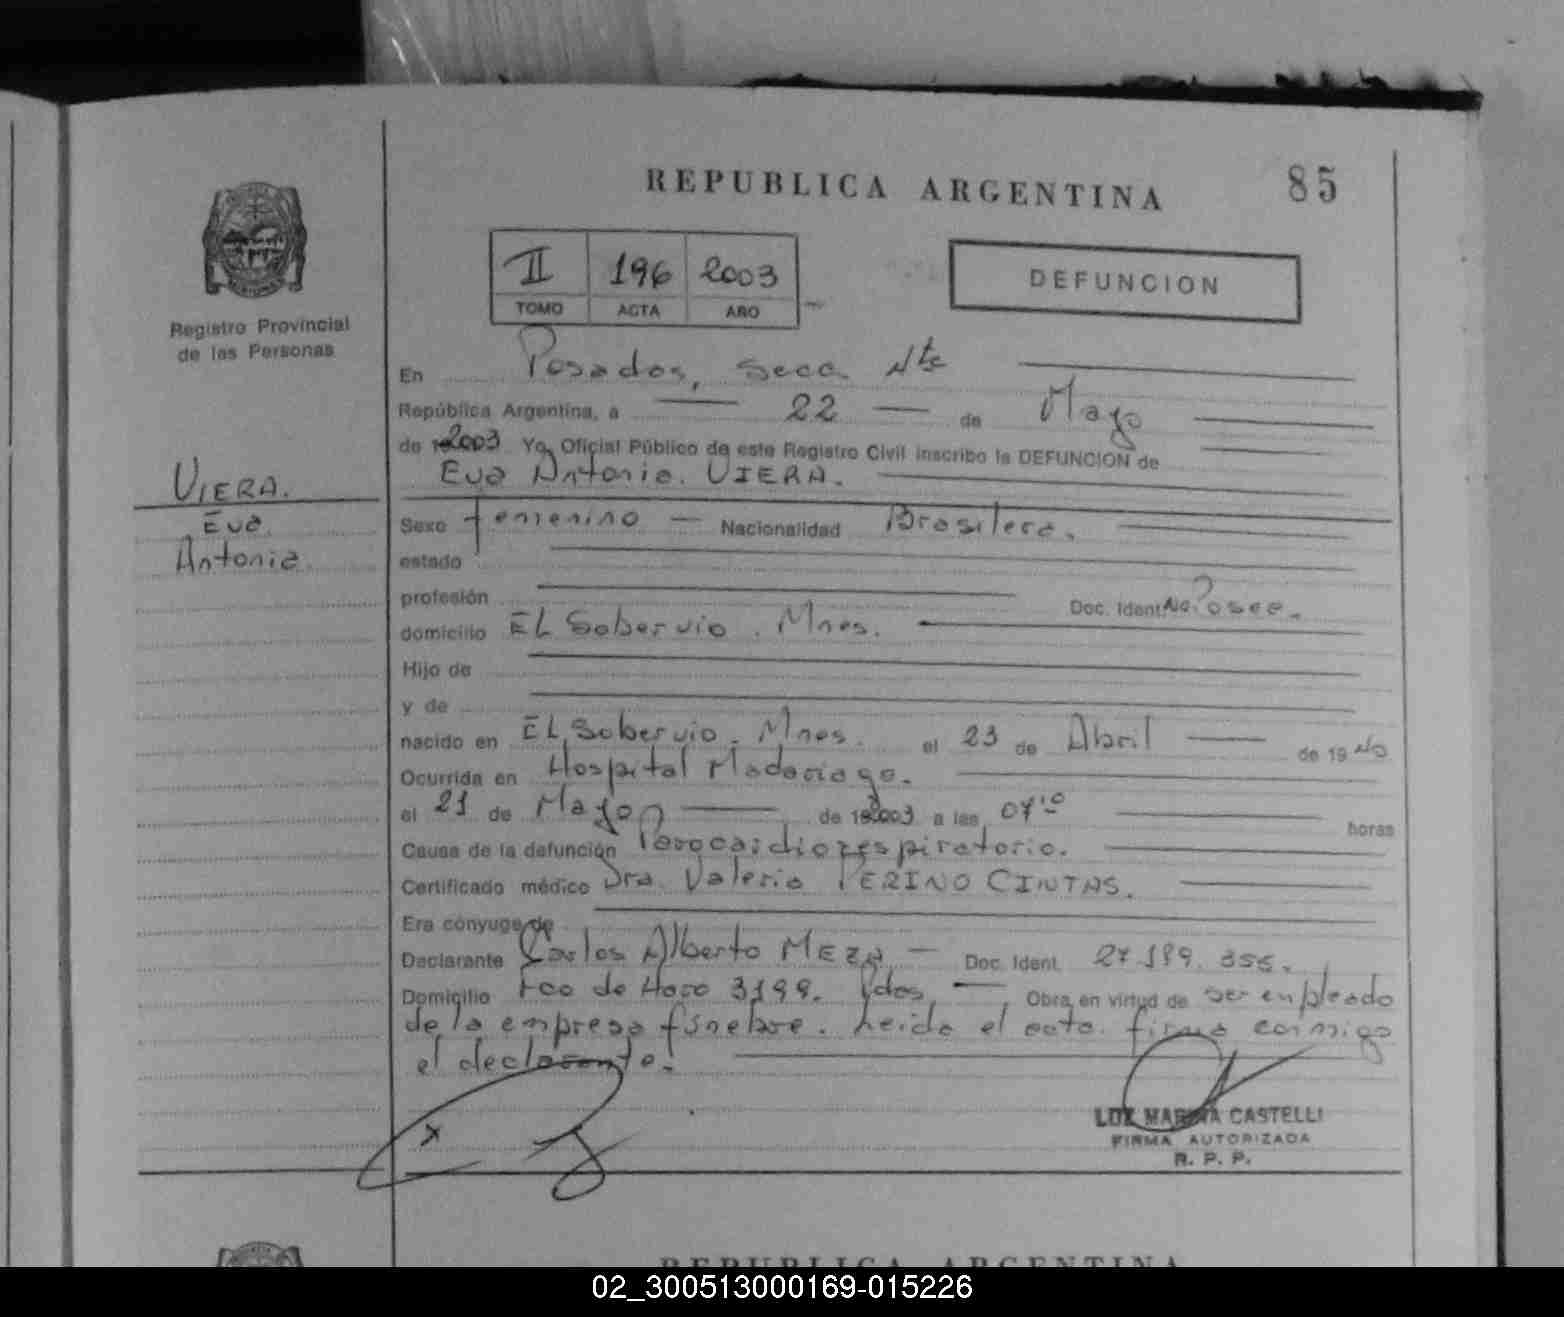 REPUBLICA ARGENTINA 85
II 196 2003
TOMO ACTA AÑO
DEFUNCION
Registro Provincial
de las Personas
VIERA.
Eva
Antonia
En Posadas, Secc. Nte
República Argentina, a 22 de Mayo
de 2003 Yo, Oficial Público de este Registro Civil inscribo la DEFUNCION de
Eva Antonia. VIERA.
Sexo femenino Nacionalidad Brasilera.
estado
profesión Doc. Ident. No Posee.
domicilio EL Sobervio. Mnes.
Hijo de
y de
nacido en EL Sobervio. Mnes. el 23 de Abril de 19 No
Ocurrida en Hospital Madariaga.
el 21 de Mayo de 2003 a las 07:10 horas
Causa de la defunción Parocardiorespiratorio.
Certificado médico Dra. Valeria PERINO CINTAS.
Era cónyuge de
Declarante Carlos Alberto MEZA Doc. Ident. 27.189.355.
Domicilio Fco de Haro 3199. Pdas, Obra en virtud de ser enpleado
de la empresa fúnebre. Leida el acta. firma conmigo
el declarante.
x
LUZ MARINA CASTELLI
FIRMA AUTORIZADA
R. P. P.
REPUBLICA ARGENTINA
02_300513000169-015226